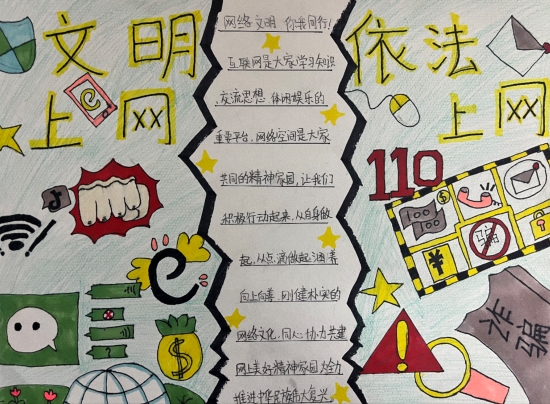 文明
上网
依法
上网
网络文明 你我同行!
互联网是大家学习知识
交流思想 休闲娱乐的
重要平台,网络空间是大家
共同的精神家园,让我们
积极行动起来,从自身做
起,从点滴做起涵养
向上向善、刚健朴实的
网络文化,同心协力共建
网上美好精神家园大力
推进中华民族伟大复兴
110
骗
诈骗